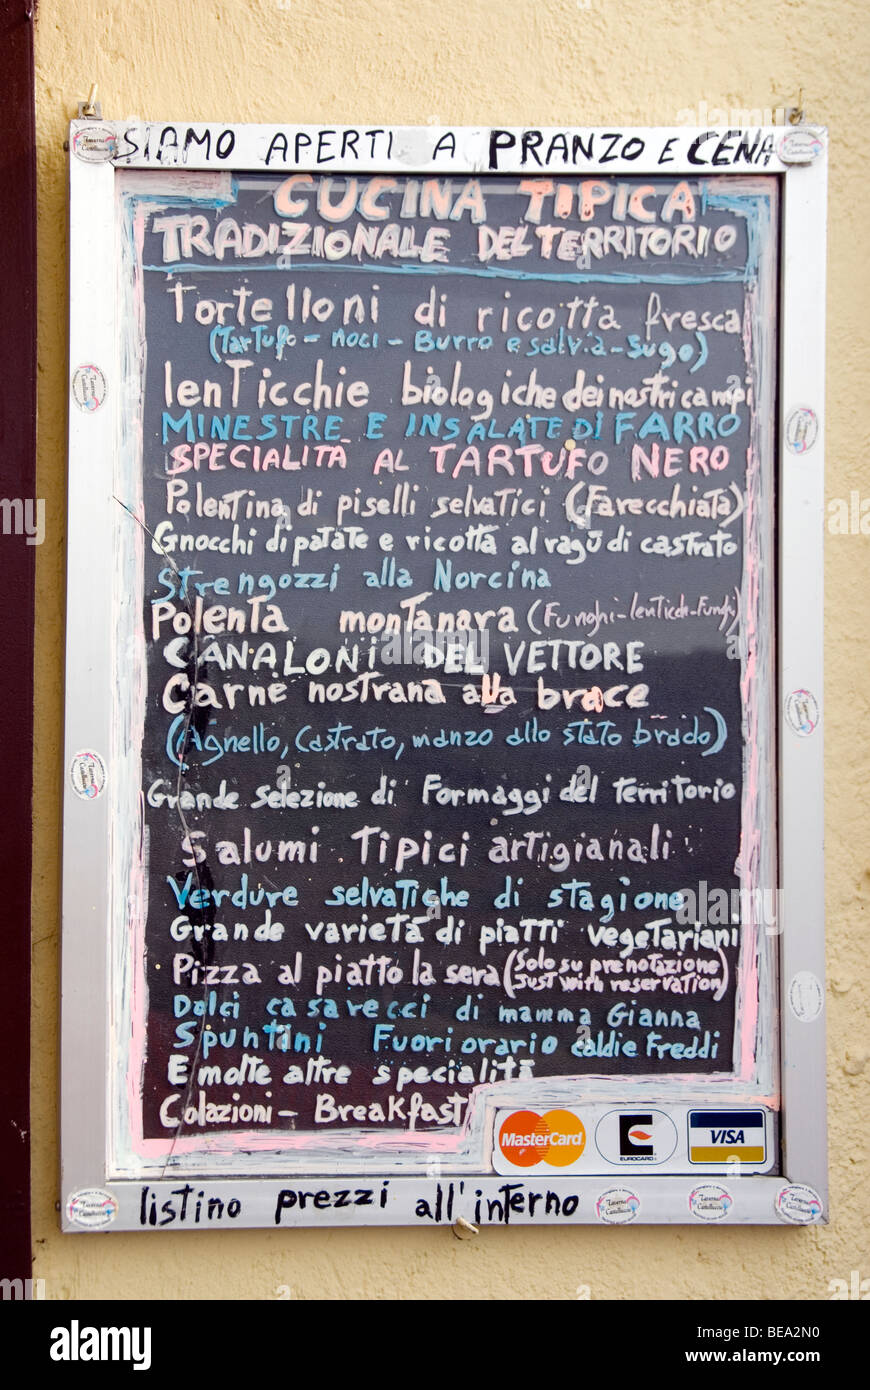 SIAMO APERTI A PRANZO E CENA
CUCINA TIPICA
TRADIZIONALE DEL TERRITORIO
Tortelloni di ricotta fresca
(Tartufo - Noci - Burro e salvia - Sugo)
lenticchie biologiche dei nostri campi
MINESTRE E INSALATE DI FARRO
SPECIALITÀ AL TARTUFO NERO
Polentina di piselli selvatici (Farecchiata)
Gnocchi di patate e ricotta al ragù di castrato
Strengozzi alla Norcina
Polenta montanara (Funghi-lenticch-Funghi)
CANALONI DEL VETTORE
Carne nostrana alla brace
(Agnello, Castrato, manzo allo stato brado)
Grande selezione di Formaggi del territorio
Salumi Tipici artigianali
Verdure selvatiche di stagione
Grande varietà di piatti vegetariani
Pizza al piatto la sera (Solo su prenotazione
Just with reservation)
Dolci casarecci di mamma Gianna
Spuntini Fuori orario caldi e Freddi
E molte altre specialità
Colazioni - Breakfast
MasterCard
EUROCARD
VISA
listino prezzi all'interno
Taverna
Castelluccio
alamy
Image ID: BEA2N0
www.alamy.com